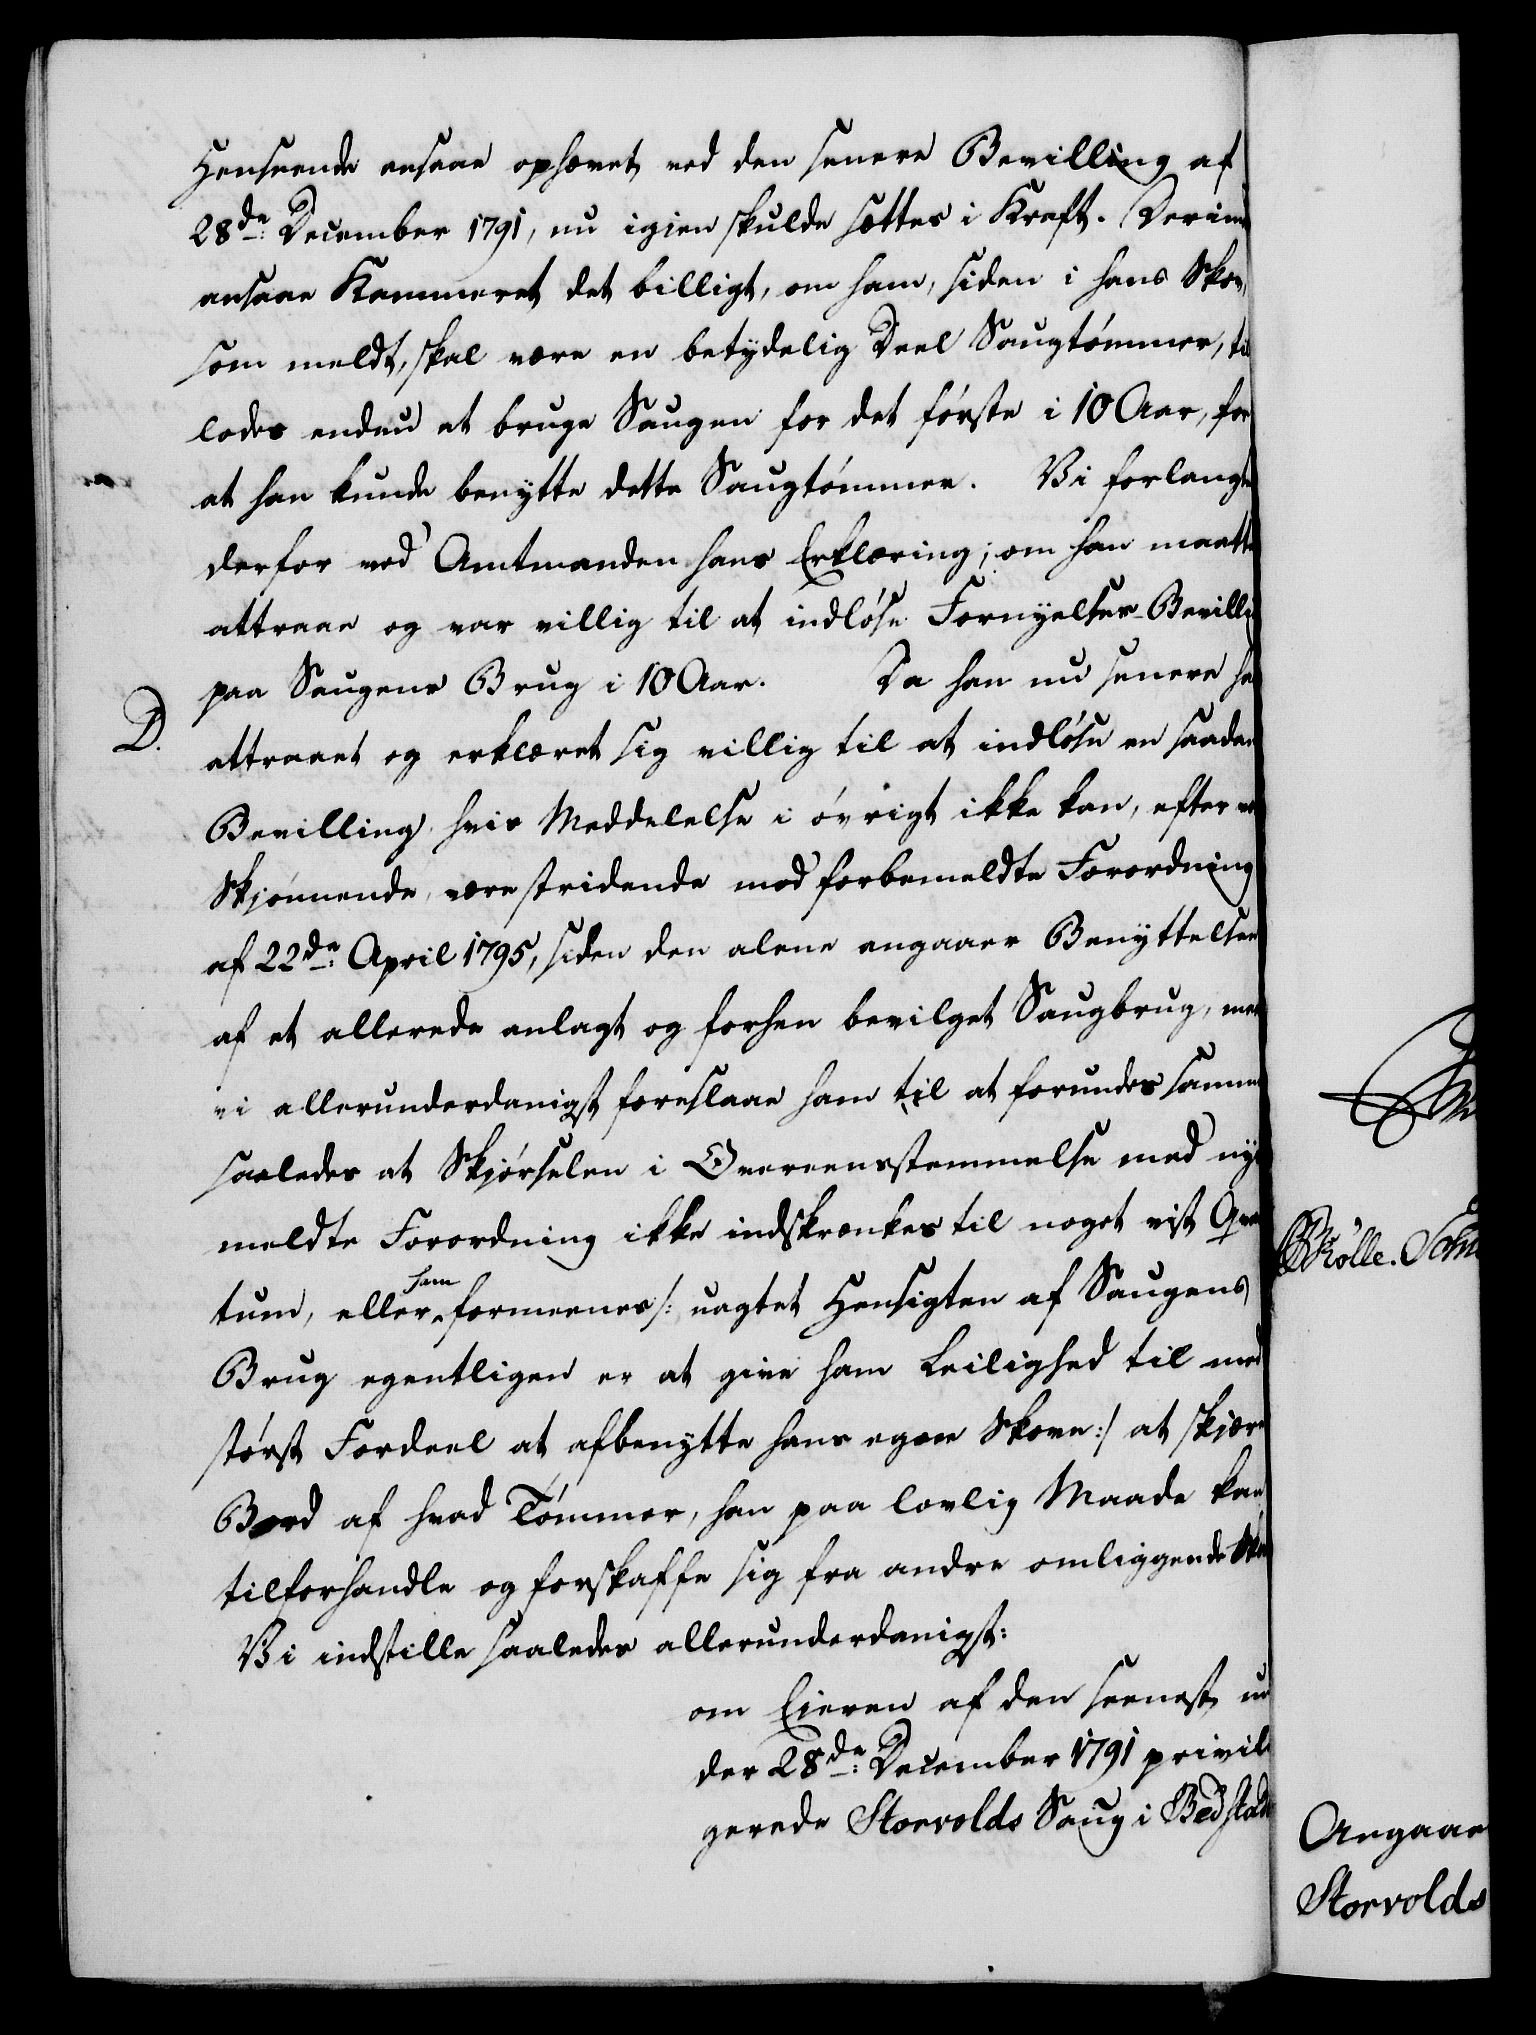 Henseende ansaae ophævet ved den senere Bevilling af
28de: December 1791, nu igien skulde sættes i Kraft. Derim
ansaae Kammeret det billigt, om ham, siden i hans Skov,
som meldt, skal være en betydelig Deel Saugtømmer, til
lodes endnu at bruge Saugen for det første i 10 Aar, for
at han kunde benytte dette Saugtømmer. Vi forlangte
derfor ved Amtmanden hans Erklæring, om han maatte
attraae og var villig til at indløse Fornyelses-Bevilli
paa Saugens Brug i 10 Aar. Da han nu senere ha
D.
attraaet og erklæret sig villig til at indløse en saadan
Bevilling, hvis Meddelelse i øvrigt ikke kan, efter vo
Skjønnende, være stridende mod forbemeldte Forordning
af 22de: April 1795, siden den alene angaaer Benyttelsen
af et allerede anlagt og forhen bevilget Saugbrug, maa
vi allerunderdanigst foreslaae ham til at forundes samme
saaledes at Skjørselen i Overeensstemmelse med nys
meldte Forordning ikke indskrænkes til noget vist Qvan
tum, eller ham formeenes /: uagtet Hensigten af Saugens
Brug egentligen er at give ham Leilighed til med
størst Fordeel at afbenytte hans egen Skove :/ at skjære
Bord af hvad Tømmer, han paa lovlig Maade kan
tilforhandle og forskaffe sig fra andre omliggende Sko
Vi indstille saaledes allerunderdanigst:
om Eieren af den seenest un
der 28de: December 1791 privile
gerede Storvolds Saug i Bedstad
Kølle. Schu
Angaae
Storvolds